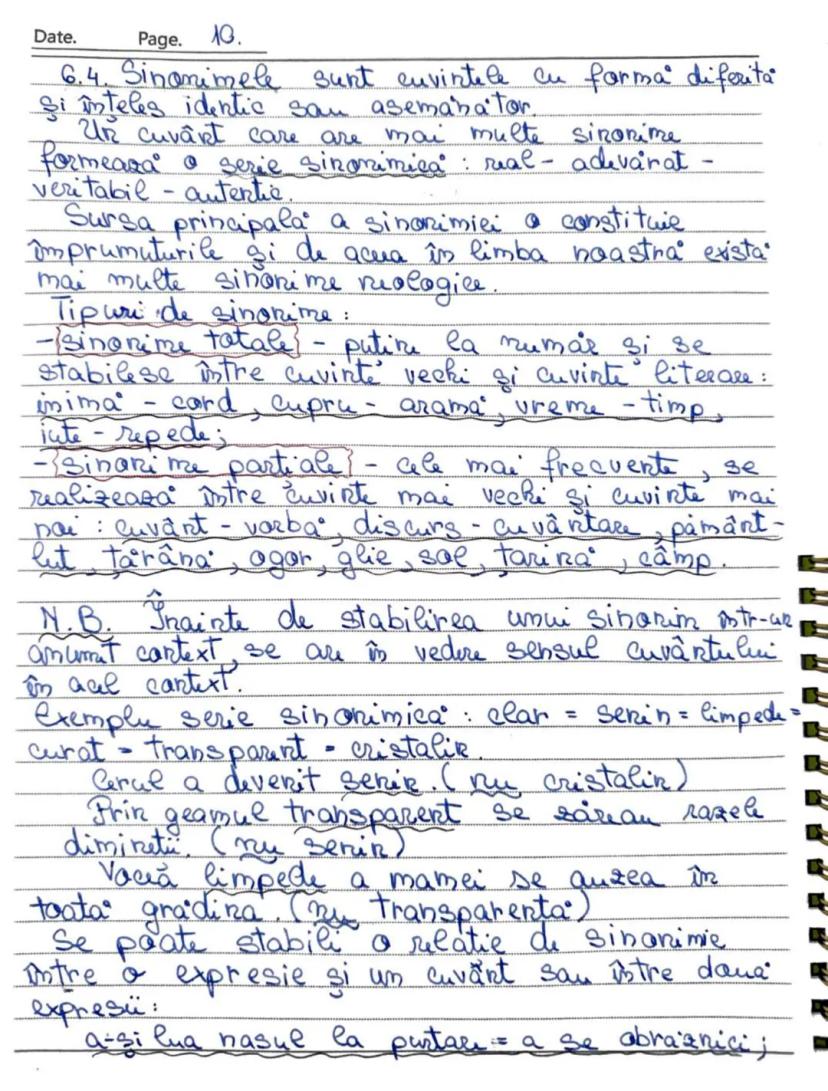 Date. Page. 10.
6.4. Sinonimele sunt cuvintele cu formă diferită
și înțeles identic sau asemănător.
Un cuvânt care are mai multe sinonime
formează o serie sinonimică : real - adevărat -
veritabil - autentic.
Sursa principală a sinonimiei o constituie
împrumuturile și de aceea în limba noastră există
mai multe sinonime neologice.
Tipuri de sinonime :
- sinonime totale - puține la număr și se
stabilesc între cuvinte vechi și cuvinte literare :
inimă - cord, cupru - aramă, vreme - timp,
iute - repede;
- sinonime parțiale - cele mai frecvente, se
realizează între cuvinte mai vechi și cuvinte mai
noi : cuvânt - vorbă, discurs - cuvântare, pământ -
lut, țărână, ogor, glie, sol, țarină, câmp.
N.B. Înainte de stabilirea unui sinonim într-un
anumit context, se are în vedere sensul cuvântului
în acel context.
Exemplu serie sinonimică : clar = senin = limpede =
curat = transparent = cristalin.
Cerul a devenit senin. (nu cristalin)
Prin geamul transparent se zăreau razele
dimineții. (nu senin)
Vocea limpede a mamei se auzea în
toată grădina. (nu transparentă)
Se poate stabili o relație de sinonimie
între o expresie și un cuvânt sau între două
expresii :
a-și lua nasul la purtare = a se obrăznici ;